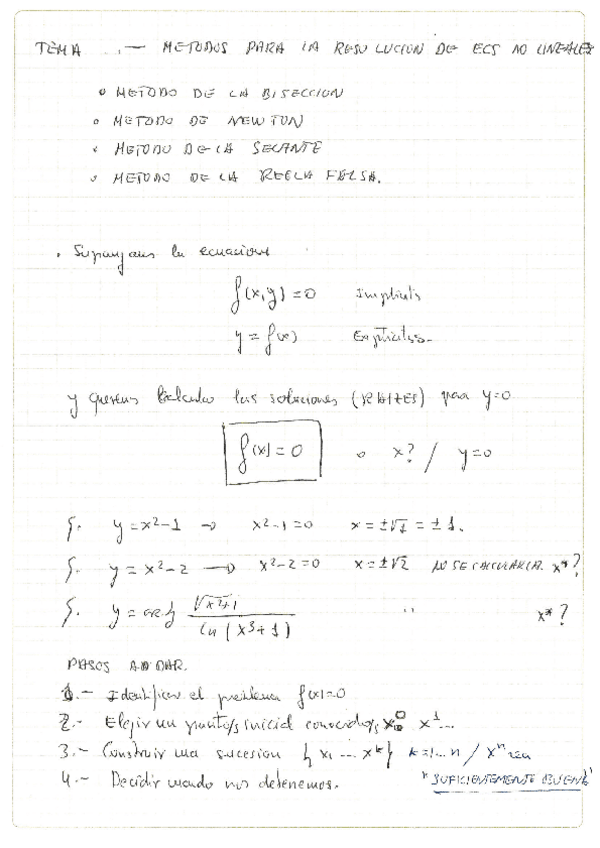 TEMA .- METODOS PARA LA RESOLUCION DE ECS NO LINEALES
• METODO DE LA BISECCION
• METODO DE NEWTON
• METODO DE LA SECANTE
• METODO DE LA REGLA FALSA.
• Supongamos la ecuacion
f(x,y)=0 Implicita
y = f(x) Explicita.
y queremos calcular las soluciones (RAICES) para y=0
f(x)=0 o x? / y=0
y=x²-1 → x²-1=0 x=±√1 = ±1.
y = x²-2 → x²-2=0 x=±√2 NO SE CALCULARLA x*?
y = √x²+1 / ln(x³+1) " x*?
PASOS A DAR.
1.- Identificar el problema f(x)=0
2.- Elegir un punto/s inicial conocido/s x⁰ x¹...
3.- Construir una sucesion { x₁ ... xᵏ } k=1...n / xⁿ sea
4.- Decidir cuando nos detenemos. "SUFICIENTEMENTE BUENO"